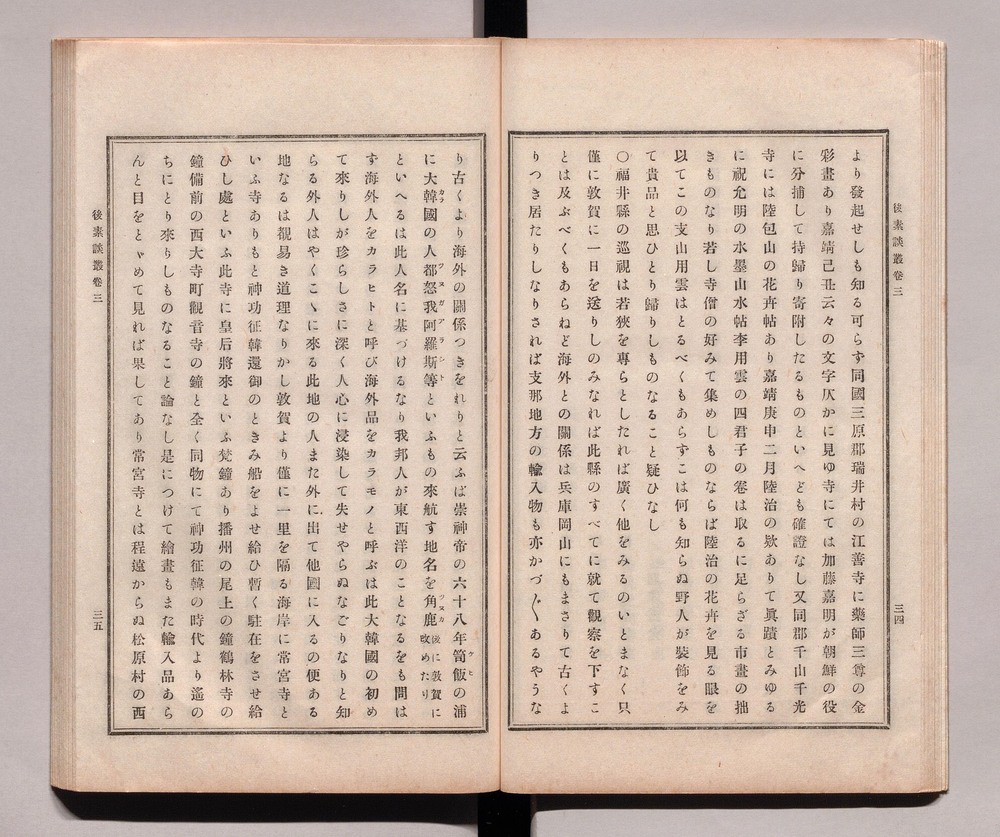 後素談叢卷三
三四
より發起せしも知る可らず同國三原郡瑞井村の江善寺に藥師三尊の金
彩畫あり嘉靖己丑云々の文字仄かに見ゆ寺にては加藤嘉明が朝鮮の役
に分捕して持歸り寄附したるものといへども確證なし又同郡千山千光
寺には陸包山の花卉帖あり嘉靖庚申二月陸治の欵ありて眞蹟とみゆる
に祝允明の水墨山水帖李用雲の四君子の卷は取るに足らざる市畫の拙
きものなり若し寺僧の好みて集めしものならば陸治の花卉を見る眼を
以てこの支山用雲はとるべくもあらずこは何も知らぬ野人が裝飾をみ
て貴品と思ひとり歸りしものなること疑ひなし
〇福井縣の巡視は若狹を專らとしたれば廣く他をみるのいとまなく只
僅に敦賀に一日を送りしのみなれば此縣のすべてに就て觀察を下すこ
とは及ぶべくもあらねど海外との關係は兵庫岡山にもまさりて古くよ
りつき居たりしなりされば支那地方の輸入物も亦かづ〱あるやうな
り古くより海外の關係つきをれりと云ふば崇神帝の六十八年笥飯の浦
に大韓國の人都怒我阿羅斯等といふもの來航す地名を角鹿後に敦賀に改めたり
といへるは此人名に基づけるなり我邦人が東西洋のことなるをも問は
ず海外人をカラヒトと呼び海外品をカラモノと呼ぶは此大韓國の初め
て來りしが珍らしさに深く人心に浸染して失せやらぬなごりなりと知
らる外人はやくこゝに來る此地の人また外に出て他國に入るの便ある
地なるは覩易き道理なりかし敦賀より僅に一里を隔る海岸に常宮寺と
いふ寺ありもと神功征韓還御のときみ船をよせ給ひ暫く駐在をさせ給
ひし處といふ此寺に皇后將來といふ梵鐘あり播州の尾上の鐘鶴林寺の
鐘備前の西大寺町觀音寺の鐘と全く同物にて神功征韓の時代より遙の
ちにとり來りしものなること論なし是につけて繪畫もまた輸入品あら
んと目をとゞめて見れば果してあり常宮寺とは程遠からぬ松原村の西
後素談叢卷三
三五